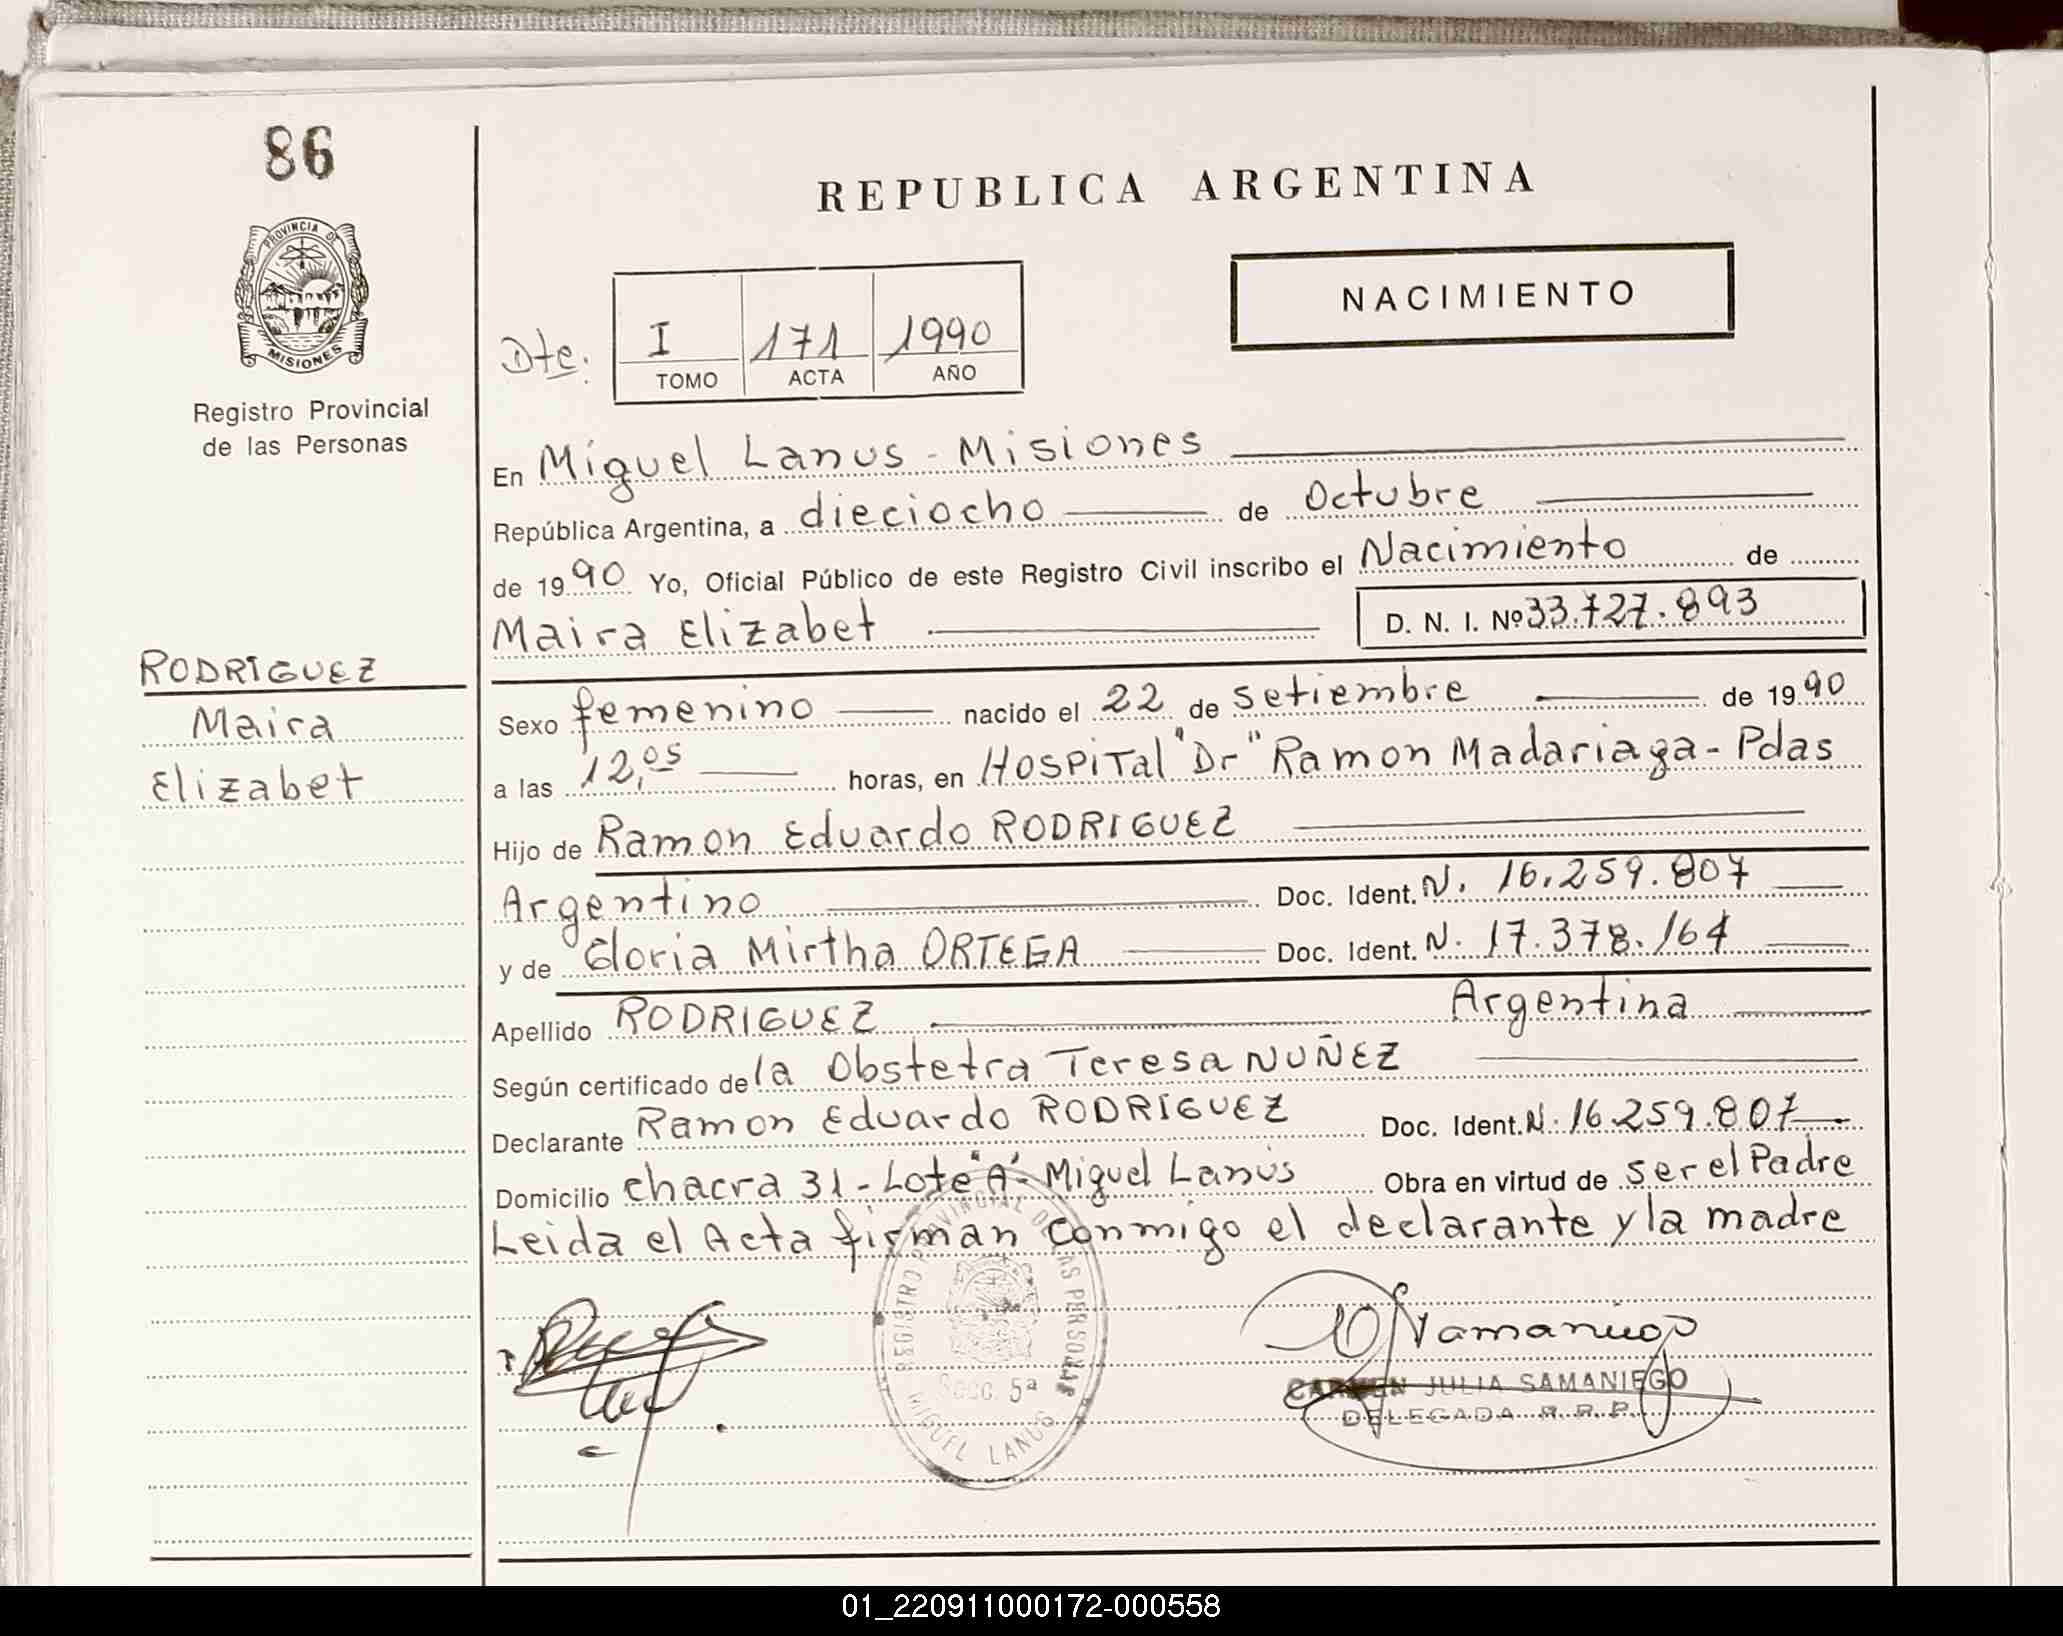 86
PROVINCIA DE
MISIONES
Registro Provincial
de las Personas
RODRIGUEZ
Maira
Elizabet
REPUBLICA ARGENTINA
NACIMIENTO
Dte: I 171 1990
TOMO ACTA AÑO
En Miguel Lanus - Misiones
República Argentina, a dieciocho de Octubre
de 1990 Yo, Oficial Público de este Registro Civil inscribo el Nacimiento de
Maira Elizabet D. N. I. Nº 33.727.893
Sexo femenino nacido el 22 de Setiembre de 1990
a las 12,05 horas, en Hospital "Dr" Ramon Madariaga - Pdas
Hijo de Ramon Eduardo RODRIGUEZ
Argentino Doc. Ident. N. 16.259.807
y de Gloria Mirtha ORTEGA Doc. Ident. N. 17.378.164
Apellido RODRIGUEZ Argentina
Según certificado de la Obstetra Teresa NUÑEZ
Declarante Ramon Eduardo RODRIGUEZ Doc. Ident. N. 16.259.807
Domicilio chacra 31 - Lote "A" - Miguel Lanús Obra en virtud de ser el Padre
Leida el Acta firman conmigo el declarante y la madre
REGISTRO PROVINCIAL DE LAS PERSONAS
Secc. 5ª
MIGUEL LANUS
CARMEN JULIA SAMANIEGO
DELEGADA R. R. P.
01_220911000172-000558